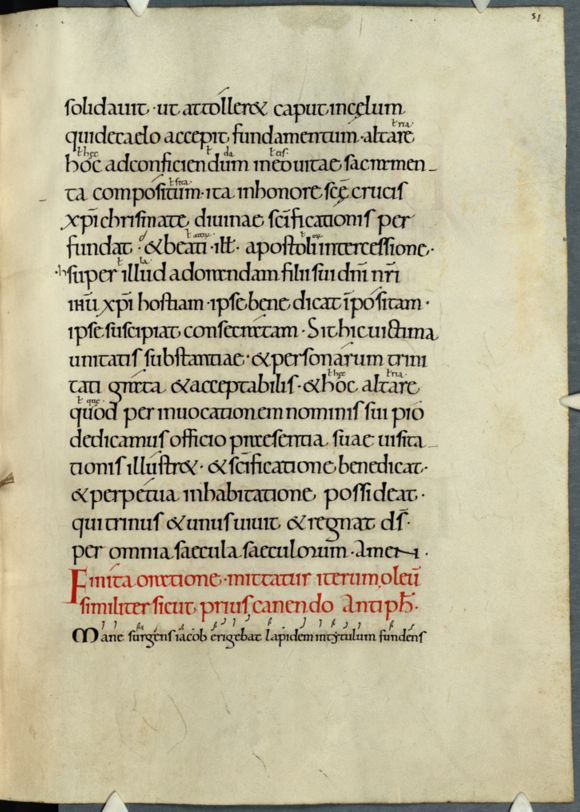 51
solidauit · ut attoller& caput incęlum
quidetaelo accepit fundamentum · altare
hoc adconficiendum ineo uitae sacramen-
ta compositum · ita inhonore scę crucis
xp̄i chrismate, diuinae sc̄ificationis per
fundat · & beati · ill̄ · apostoli intercessione ·
super illud adorandam filii sui dn̄i nr̄i
ihū xp̄i hostiam · ipse bene dicat īpositam ·
ipse suscipiat consecratam · Sit hic uictima
unitatis substantiae · & personarum trini
tati grata & acceptabilis · & hoc altare
quod per inuocationem nominis sui pio
dedicamus officio praesentia suae uisita-
tionis illustr& · & sc̄ificatione benedicat ·
& perpetua inhabitatione, possideat ·
qui trinus & unus uiuit & regnat dš ·
per omnia saecula saeculorum · amen ·
Finita oratione · mittatur iterum, oleū
similiter sicut prius canendo Antiph̄ ·
Mane surgens iacob erigebat lapidem intytulum fundens